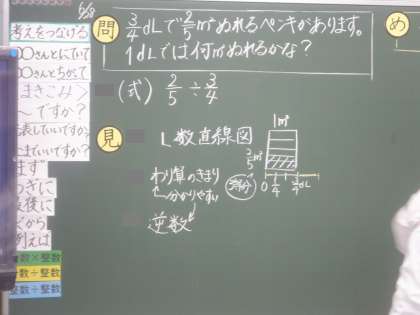 6/28
考えをつなげる
〇〇さんとにていて
〇〇さんとちがって
まきこみ>
〜ですか？
表していいですか
ですか?
まず
つぎに
最後に
だから
例えば
数×整数
数÷整数
分数÷整数
問
3/4 dLで2/5 m²ぬれるペンキがあります。
1dLでは何m²ぬれるかな？
(式) 2/5 ÷ 3/4
見
数直線図
1m²
2/5 m²
0 1/4 3/4 dL
わり算のきまり
分かりやすい
逆数
め